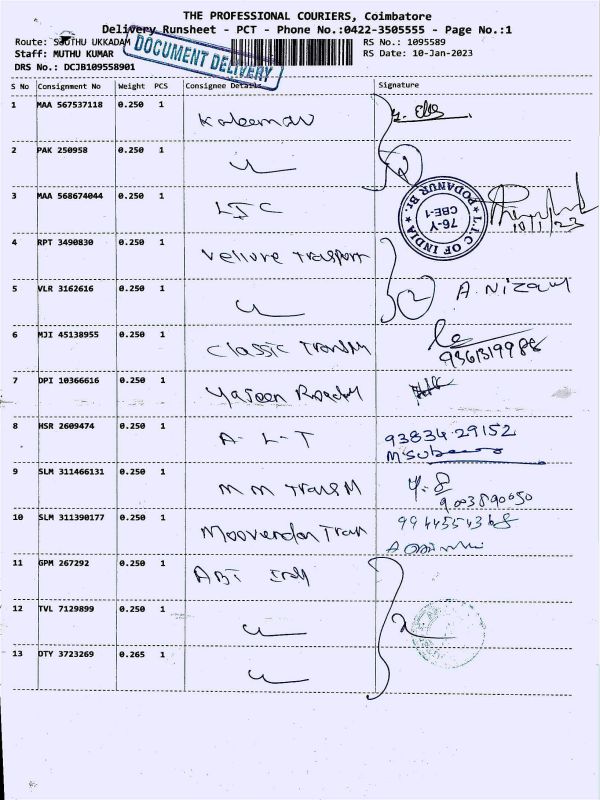 THE PROFESSIONAL COURIERS, Coimbatore
Delivery Runsheet - PCT - Phone No.:0422-3505555 - Page No.:1
Route: SOUTHU UKKADAM
DOCUMENT DELIVERY
RS No.: 1095589
Staff: MUTHU KUMAR
RS Date: 10-Jan-2023
DRS No.: DCJB109558901
S No Consignment No Weight PCS Consignee Details Signature
1 MAA 567537118 0.250 1
2 PAK 250958 0.250 1
3 MAA 568674044 0.250 1 LIC
L.I.C OF INDIA PODANUR Br. 76-Y CBE-1
10/1/23
4 RPT 3490830 0.250 1 Vellore Trasport
5 VLR 3162616 0.250 1 A. Nizam
6 MJI 45138955 0.250 1 Classic
9361319988
7 DPI 10366616 0.250 1 Yaseen
8 HSR 2609474 0.250 1 A-L-T 93834-29152
9 SLM 311466131 0.250 1 MM
9003890050
10 SLM 311390177 0.250 1 Moovendar Tran
11 GPM 267292 0.250 1 ABT
12 TVL 7129899 0.250 1
13 DTY 3723269 0.265 1